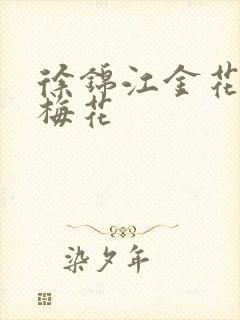 徐锦江金花
梅花
染夕年